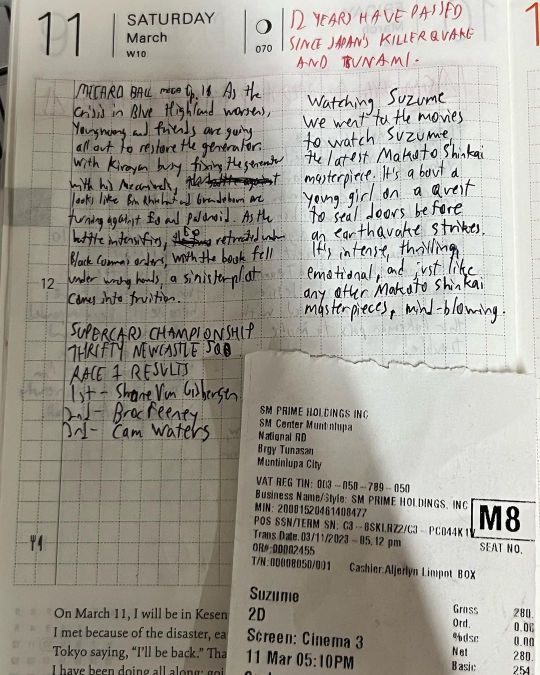 11
SATURDAY
March
W10
070
12 YEARS HAVE PASSED
SINCE JAPAN'S KILLER QUAKE
AND TSUNAMI.
MICARD BALL Ep. 18 As the
Crisis in Blue Highland worsens,
Younghoong and friends are going
all out to restore the generator.
With Kirayan busy fixing the generator
with his Mecanivels,
looks like and are
turning against Eo and Polanoid. As the
battle intensifies, Eo retreated under
Black Commai orders, with the book fell
under wrong hands, a sinister plot
comes into fruition.
12
SUPERCARS CHAMPIONSHIP
THRIFTY NEWCASTLE 500
RACE 1 RESULTS
1st - Shane Van Gisbergen
2nd - Broc Feeney
3rd - Cam Waters
Watching Suzume
We went to the movies
to watch Suzume,
the latest Makoto Shinkai
masterpiece. It's about a
young girl on a quest
to seal doors before
an earthquake strikes.
It's intense, thrilling,
emotional, and just like
any other Makoto Shinkai
masterpieces, mind-blowing.
On March 11, I will be in Kesen
I met because of the disaster, ea
Tokyo saying, "I'll be back." Tha
I have been doing all along: goi
SM PRIME HOLDINGS INC
SM Center Muntinlupa
National RD
Brgy Tunasan
Muntinlupa City
VAT REG TIN: 003-058-789-050
Business Name/Style: SM PRIME HOLDINGS, INC
MIN: 20081520461408477
POS SSN/TERM SN: C3-8SKLRZ2/C3-PC044K1V
Trans Date: 03/11/2023-05:12 pm
OR#:00002455
T/N:00008050/001 Cashier:Aljerlyn Limpot BOX
M8
SEAT NO.
Suzume
2D
Screen: Cinema 3
11 Mar 05:10PM
Gross 280.
Ord. 0.00
%dsc 0.00
Net 280.
Basic 254